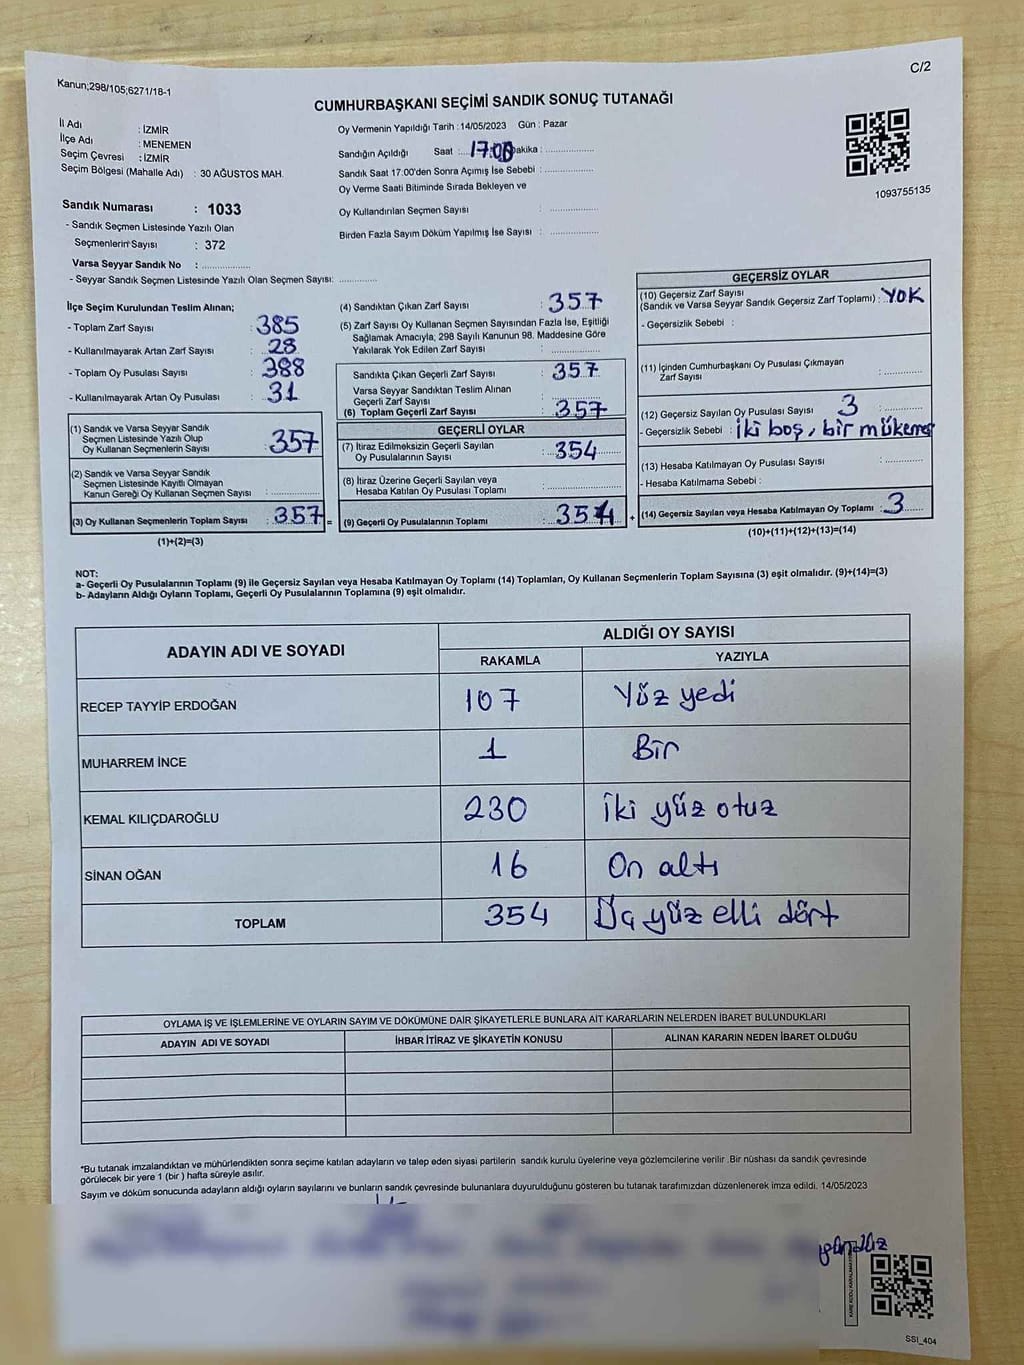 Kanun;298/105;6271/18-1
C/2
CUMHURBAŞKANI SEÇİMİ SANDIK SONUÇ TUTANAĞI
İl Adı : İZMİR
İlçe Adı : MENEMEN
Seçim Çevresi : İZMİR
Seçim Bölgesi (Mahalle Adı) : 30 AĞUSTOS MAH.
Sandık Numarası : 1033
- Sandık Seçmen Listesinde Yazılı Olan
Seçmenlerin Sayısı : 372
Varsa Seyyar Sandık No : ..................
- Seyyar Sandık Seçmen Listesinde Yazılı Olan Seçmen Sayısı: .............
Oy Vermenin Yapıldığı Tarih :14/05/2023 Gün : Pazar
Sandığın Açıldığı Saat :... 17:00 Dakika : ..................
Sandık Saat 17:00'den Sonra Açımış İse Sebebi : ..................
Oy Verme Saati Bitiminde Sırada Bekleyen ve
Oy Kullandırılan Seçmen Sayısı : ..................
Birden Fazla Sayım Döküm Yapılmış İse Sayısı : ..................
1093755135
İlçe Seçim Kurulundan Teslim Alınan;
- Toplam Zarf Sayısı : 385
- Kullanılmayarak Artan Zarf Sayısı : 28
- Toplam Oy Pusulası Sayısı : 388
- Kullanılmayarak Artan Oy Pusulası : 31
(1) Sandık ve Varsa Seyyar Sandık
Seçmen Listesinde Yazılı Olup
Oy Kullanan Seçmenlerin Sayısı : 357
(2) Sandık ve Varsa Seyyar Sandık
Seçmen Listesinde Kayıtlı Olmayan
Kanun Gereği Oy Kullanan Seçmen Sayısı : ..................
(3) Oy Kullanan Seçmenlerin Toplam Sayısı : 357 =
(1)+(2)=(3)
(4) Sandıktan Çıkan Zarf Sayısı : 357
(5) Zarf Sayısı Oy Kullanan Seçmen Sayısından Fazla İse, Eşitliği
Sağlamak Amacıyla; 298 Sayılı Kanunun 98. Maddesine Göre
Yakılarak Yok Edilen Zarf Sayısı : ..................
Sandıkta Çıkan Geçerli Zarf Sayısı : 357
Varsa Seyyar Sandıktan Teslim Alınan
Geçerli Zarf Sayısı : ..................
(6) Toplam Geçerli Zarf Sayısı : 357
GEÇERLİ OYLAR
(7) İtiraz Edilmeksizin Geçerli Sayılan
Oy Pusulalarının Sayısı : 354
(8) İtiraz Üzerine Geçerli Sayılan veya
Hesaba Katılan Oy Pusulası Toplamı : ..................
(9) Geçerli Oy Pusulalarının Toplamı : 354 +
GEÇERSİZ OYLAR
(10) Geçersiz Zarf Sayısı
(Sandık ve Varsa Seyyar Sandık Geçersiz Zarf Toplamı) : YOK
- Geçersizlik Sebebi :
(11) İçinden Cumhurbaşkanı Oy Pusulası Çıkmayan
Zarf Sayısı : ............
(12) Geçersiz Sayılan Oy Pusulası Sayısı : 3
- Geçersizlik Sebebi : İki boş, bir mükerrer
(13) Hesaba Katılmayan Oy Pusulası Sayısı : ............
- Hesaba Katılmama Sebebi :
(14) Geçersiz Sayılan veya Hesaba Katılmayan Oy Toplamı : 3
(10)+(11)+(12)+(13)=(14)
NOT:
a- Geçerli Oy Pusulalarının Toplamı (9) ile Geçersiz Sayılan veya Hesaba Katılmayan Oy Toplamı (14) Toplamları, Oy Kullanan Seçmenlerin Toplam Sayısına (3) eşit olmalıdır. (9)+(14)=(3)
b- Adayların Aldığı Oyların Toplamı, Geçerli Oy Pusulalarının Toplamına (9) eşit olmalıdır.
ADAYIN ADI VE SOYADI ALDIĞI OY SAYISI
RAKAMLA YAZIYLA
RECEP TAYYİP ERDOĞAN 107 Yüz yedi
MUHARREM İNCE 1 Bir
KEMAL KILIÇDAROĞLU 230 İki yüz otuz
SİNAN OĞAN 16 On altı
TOPLAM 354 Üç yüz elli dört
OYLAMA İŞ VE İŞLEMLERİNE VE OYLARIN SAYIM VE DÖKÜMÜNE DAİR ŞİKAYETLERLE BUNLARA AİT KARARLARIN NELERDEN İBARET BULUNDUKLARI
ADAYIN ADI VE SOYADI İHBAR İTİRAZ VE ŞİKAYETİN KONUSU ALINAN KARARIN NEDEN İBARET OLDUĞU
*Bu tutanak imzalandıktan ve mühürlendikten sonra seçime katılan adayların ve talep eden siyasi partilerin sandık kurulu üyelerine veya gözlemcilerine verilir .Bir nüshası da sandık çevresinde
görülecek bir yere 1 (bir ) hafta süreyle asılır.
Sayım ve döküm sonucunda adayların aldığı oyların sayılarını ve bunların sandık çevresinde bulunanlara duyurulduğunu gösteren bu tutanak tarafımızdan düzenlenerek imza edildi. 14/05/2023
SSI_404